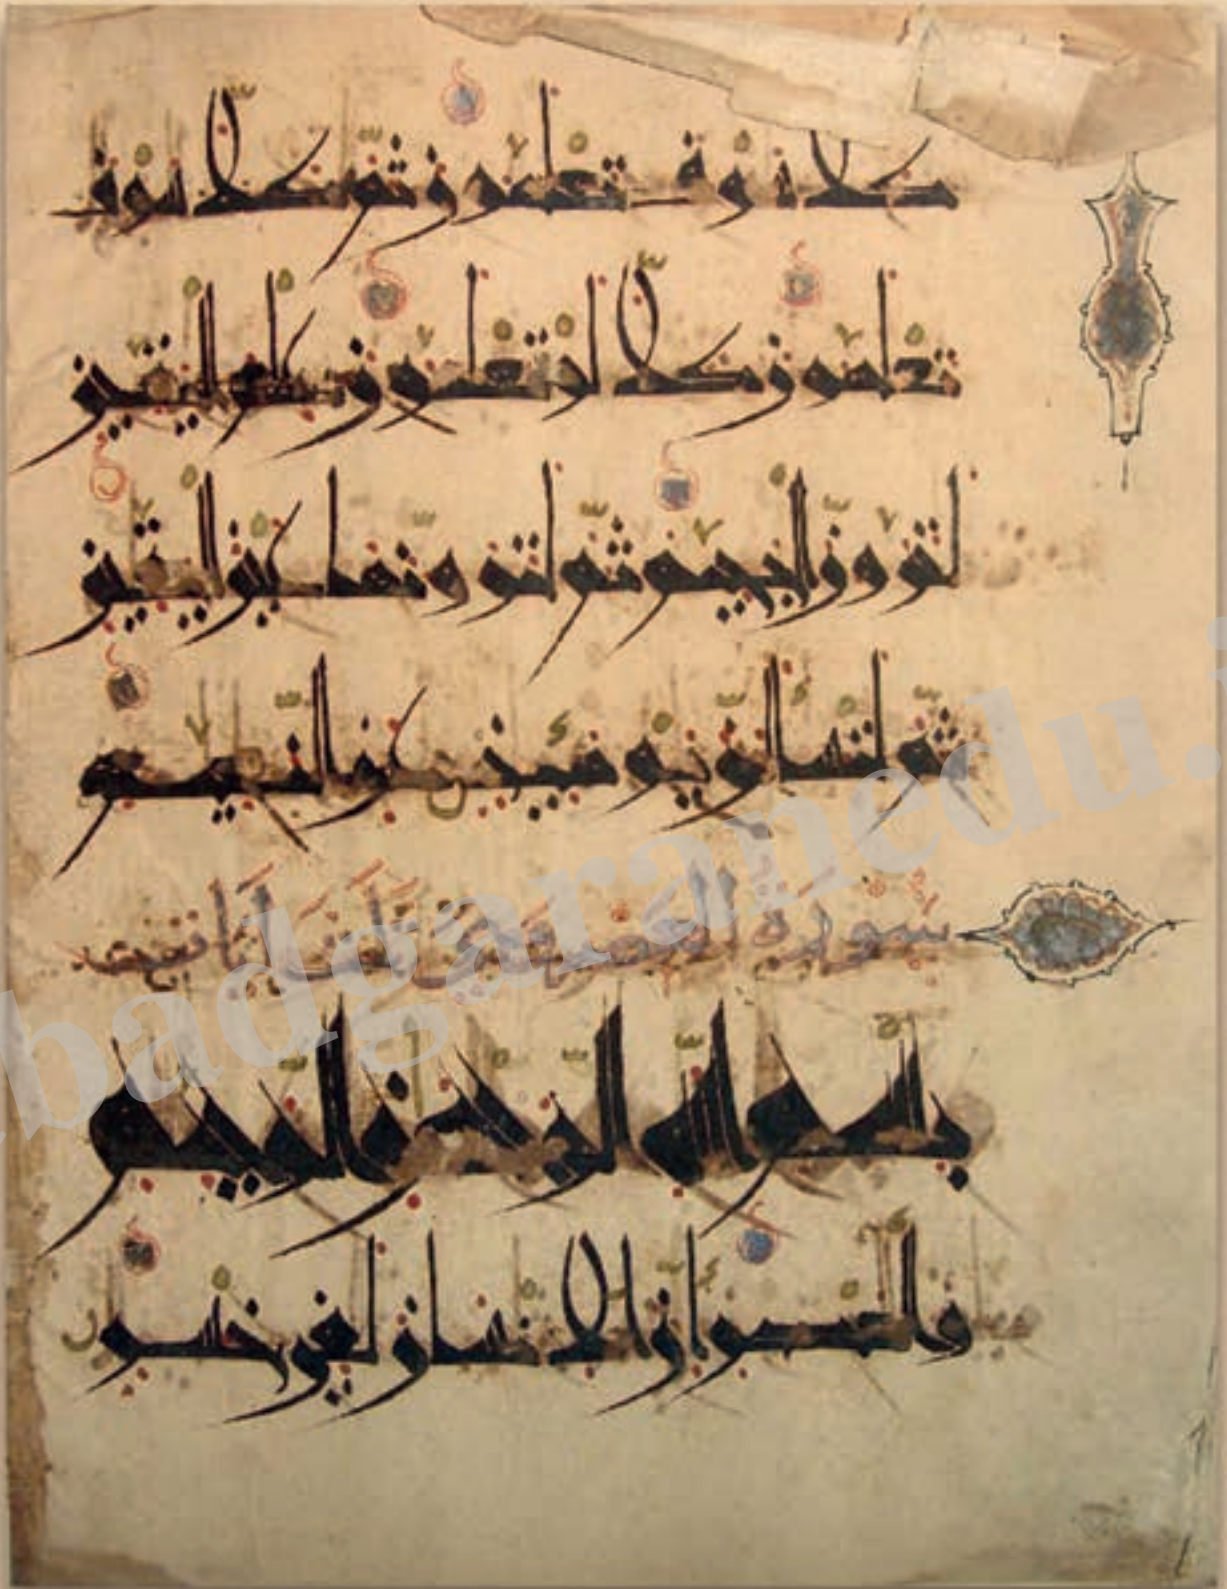 كلا سوف تعلمون ثم كلا سوف
تعلمون كلا لو تعلمون علم اليقين
لترون الجحيم ثم لترونها عين اليقين
ثم لتسئلن يومئذ عن النعيم
سورة العصر ثلاث آيات
بسم الله الرحمن الرحيم
والعصر إن الإنسان لفي خسر
badgaranedu.